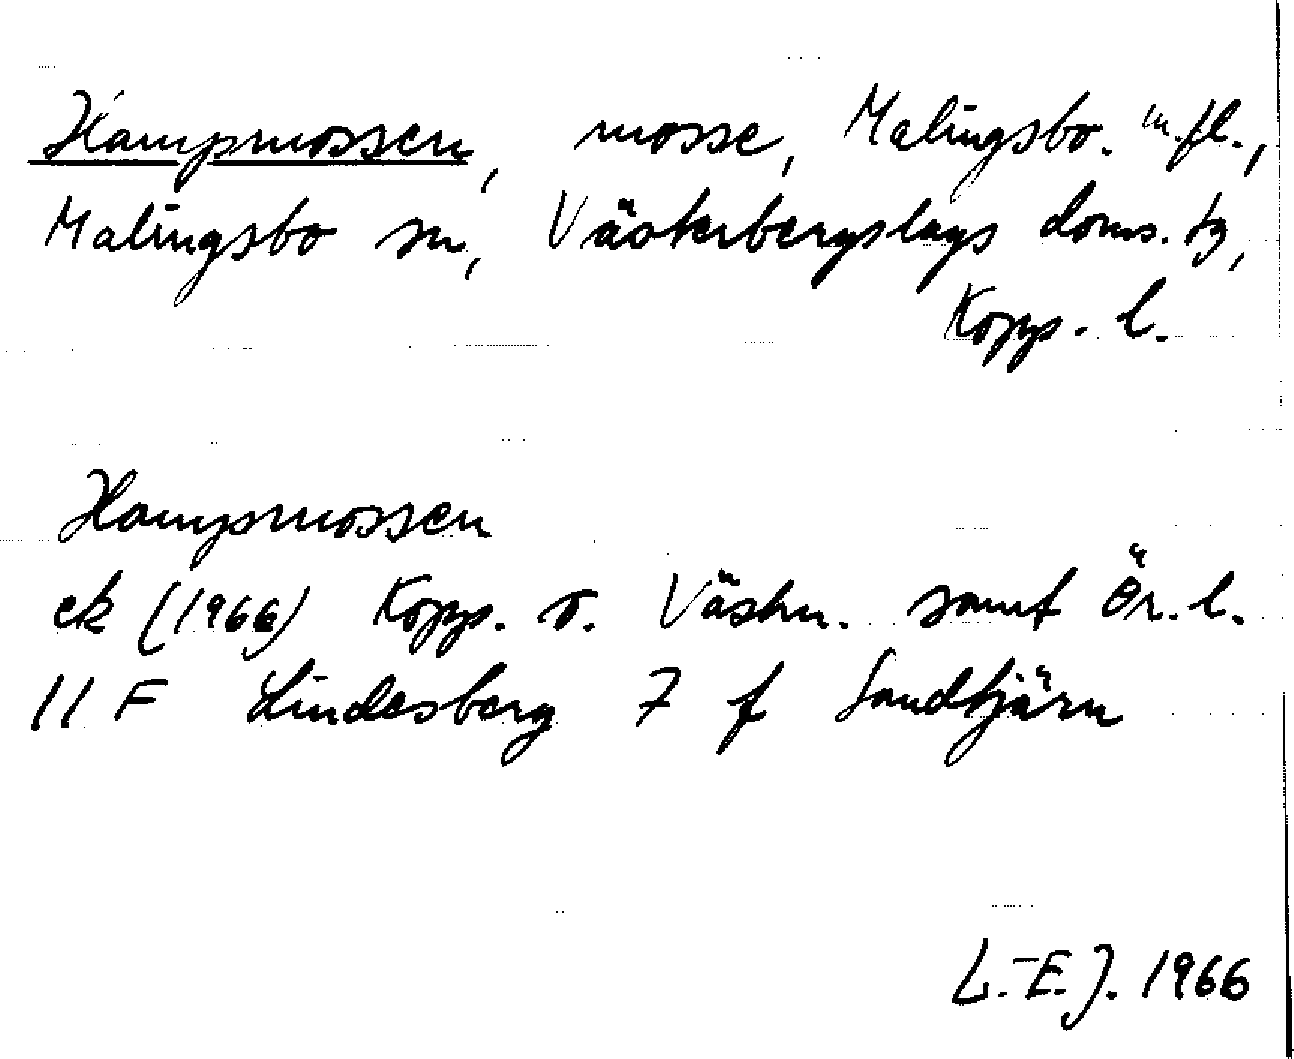 Hampmossen, mosse, Malingsbo. m.fl.,
Malingsbo sn, Västerbergslags doms. tg,
Kopp. l.
Hampmossen
ek (1966) Kopp. o. Västm. samt Ör. l.
11 F Lindesberg 7 f Sandtjärn
L.-E.J. 1966